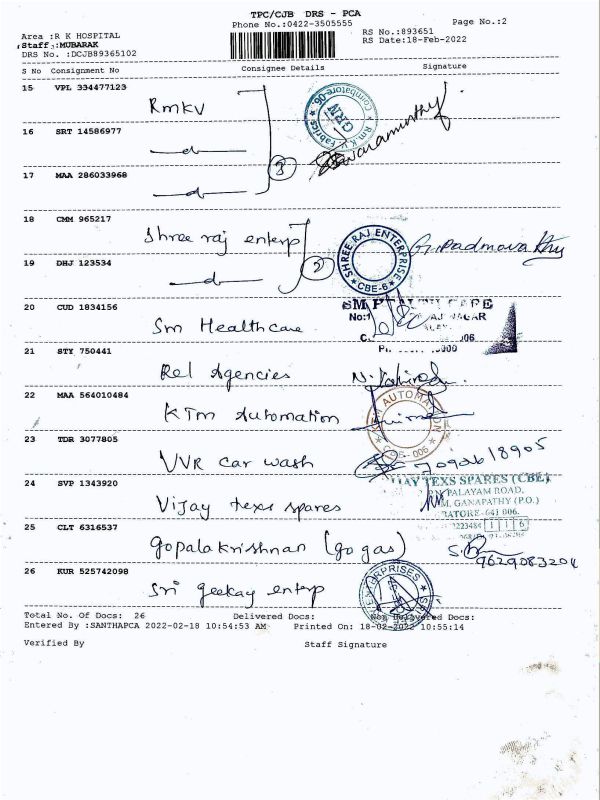 TPC/CJB DRS - PCA
Phone No.:0422-3505555
Page No.:2
Area :R K HOSPITAL
Staff :MUBARAK
DRS No. :DCJB89365102
RS No.:893651
RS Date:18-Feb-2022
S No Consignment No Consignee Details Signature
15 VPL 334477123
RMKV
Coimbatore-06
GRN
R.m.K.V. Fabrics
16 SRT 14586977
17 MAA 286033968
3
18 CMM 965217
Shree raj enterp
SHREE RAJ ENTERPRISE
CBE-6
19 DHJ 123534
2
20 CUD 1834156
Sm Healthcare
SM
No:1
NAGAR
21 STY 750441
Rel Agencies
22 MAA 564010484
KTM Automation
AUTOMATION
006
23 TDR 3077805
VVR car wash
7092618905
24 SVP 1343920
Vijay texs spares
TEXS SPARES (CBE)
PALAYAM ROAD,
GANAPATHY (P.O.)
641 006.
25 CLT 6316537
Gopalakrishnan (go gas)
26 KUR 525742098
Sri geekay enterp
ENTERPRISES
Total No. Of Docs: 26 Delivered Docs: Non Delivered Docs:
Entered By :SANTHAPCA 2022-02-18 10:54:53 AM Printed On: 18-02-2022 10:55:14
Verified By Staff Signature